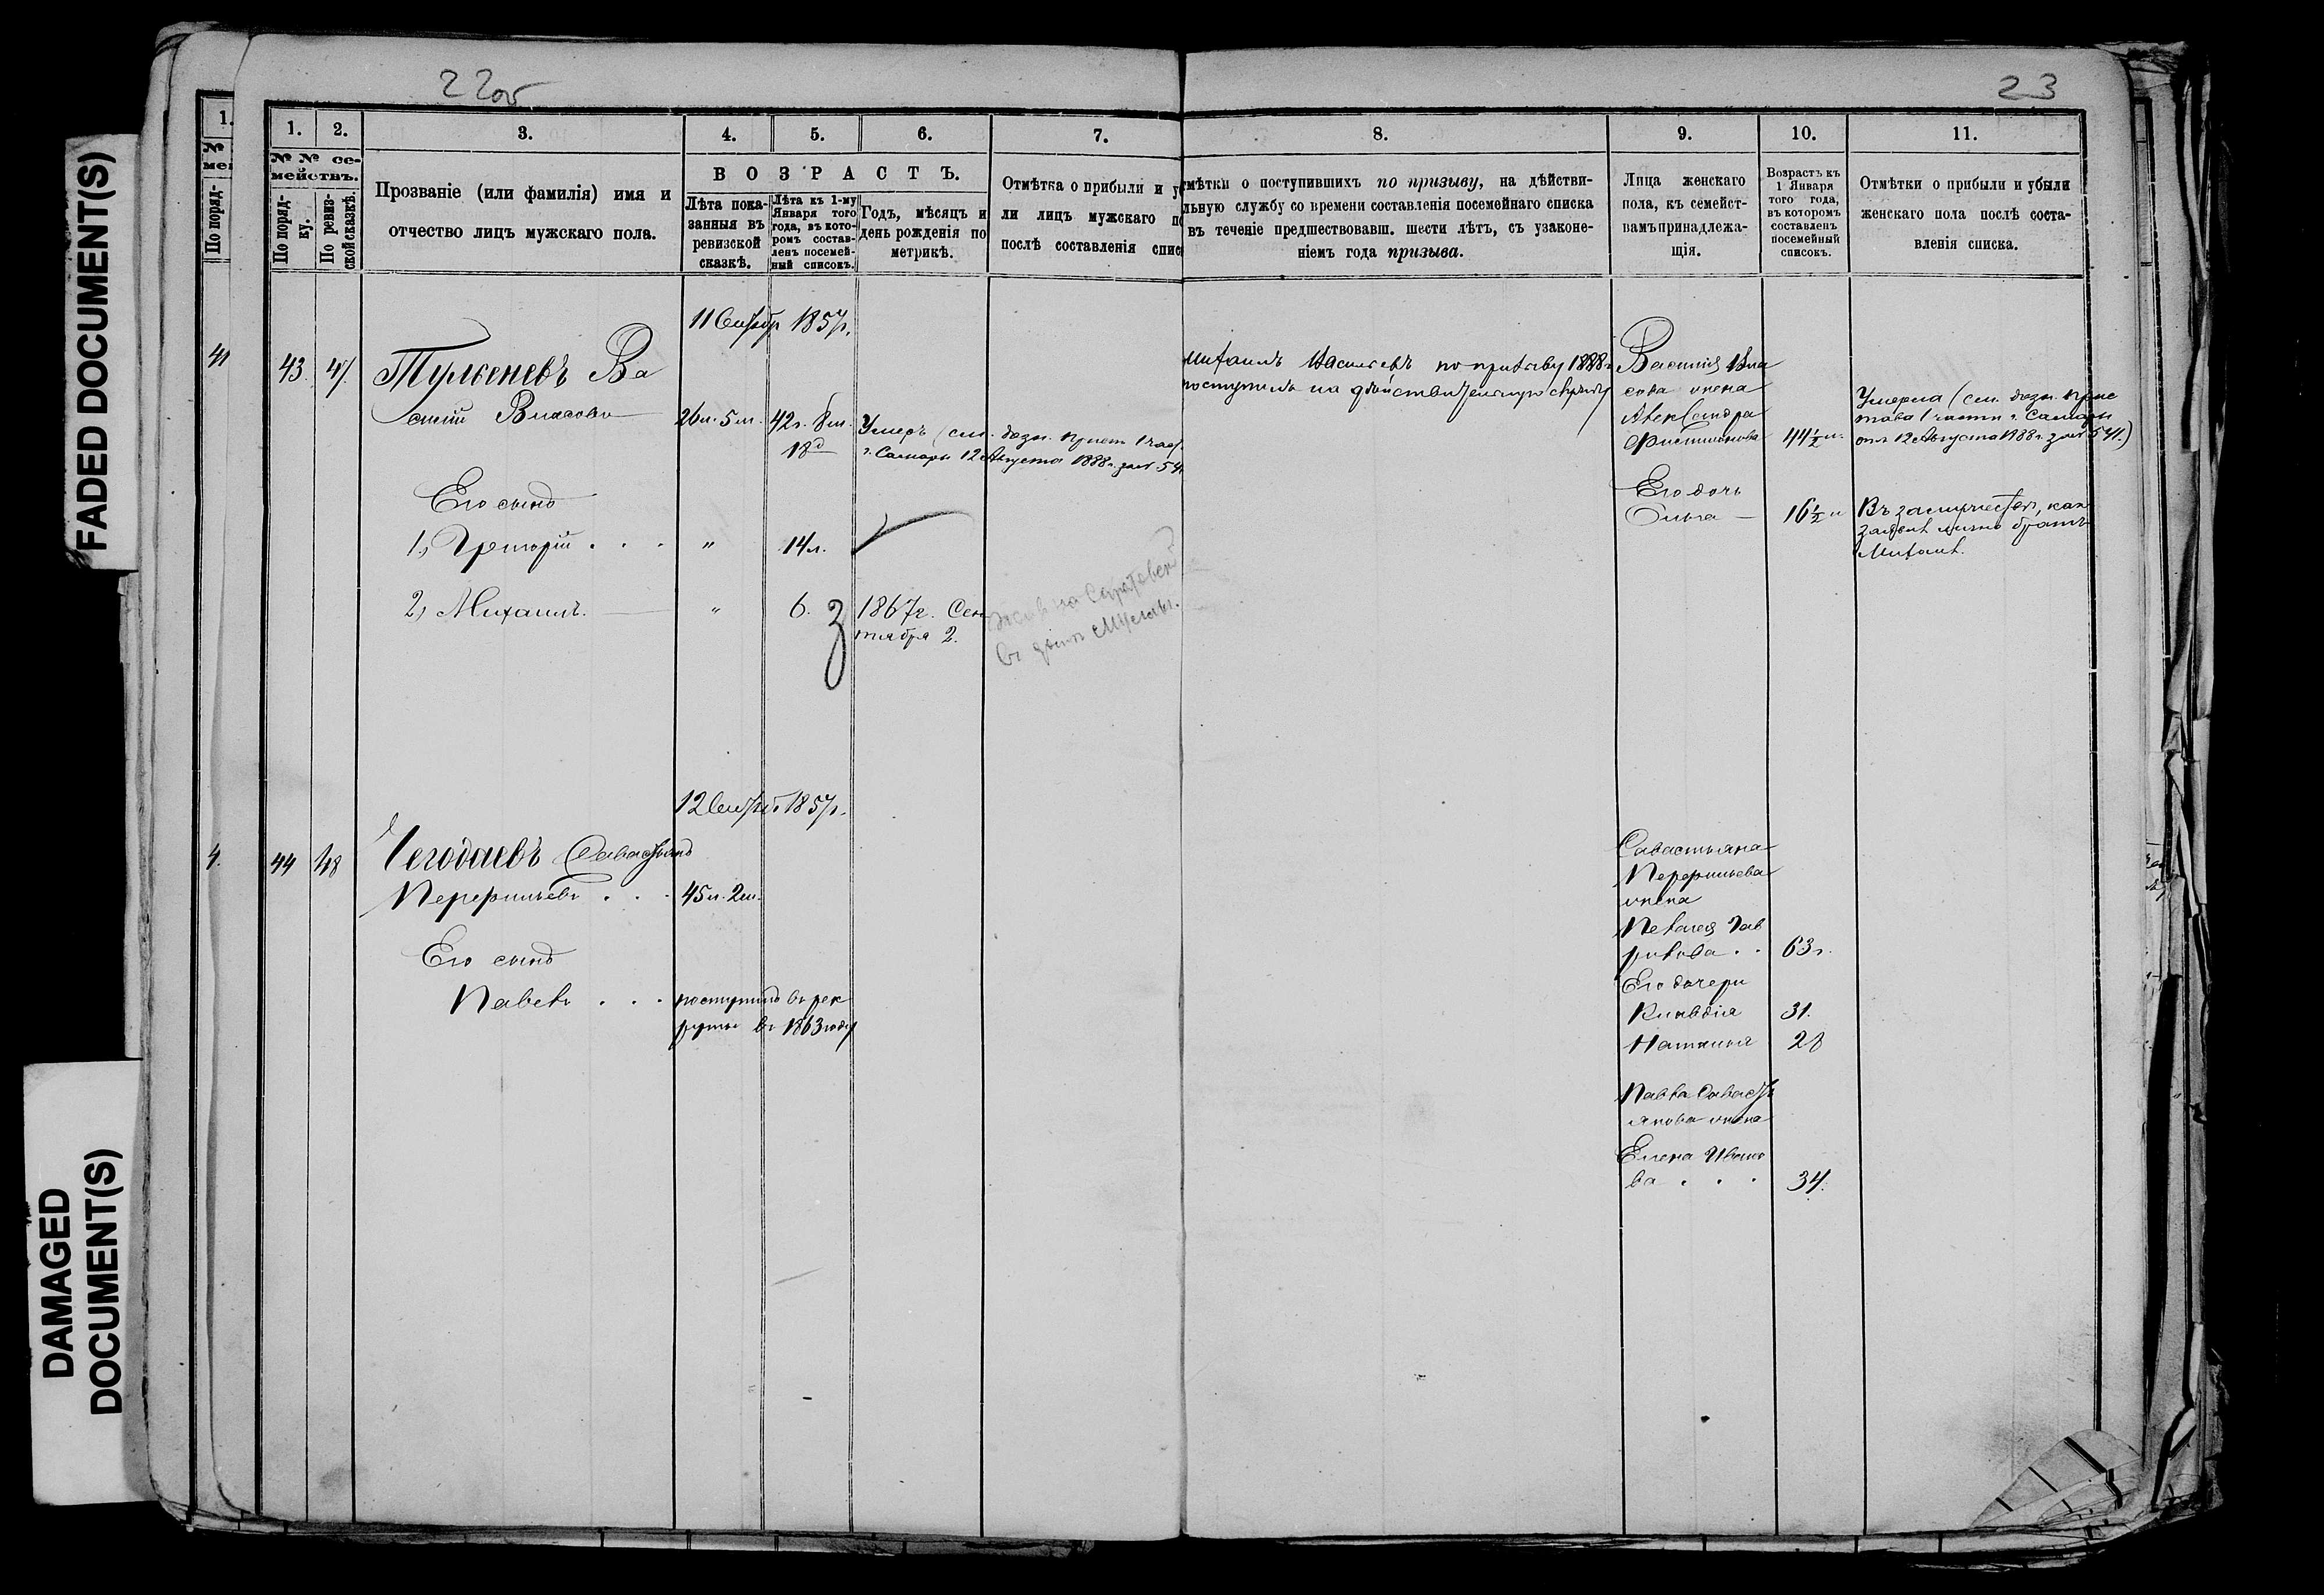 FADED DOCUMENT(S)
DAMAGED
DOCUMENT(S)
22об
23
1.
№
По поряд-
41
4.
1.
2.
3.
4.
5.
6.
7.
8.
9.
10.
11.
№ № се-
мействъ.
По поряд-
ку.
По ревиз-
ской сказкѣ.
Прозваніе (или фамилія) имя и
отчество лицъ мужскаго пола.
ВОЗРАСТЪ.
Лѣта пока-
занныя въ
ревизской
сказкѣ.
Лѣта къ 1-му
Января того
года, въ кото-
ромъ состав-
ленъ посемей-
ный списокъ.
Годъ, мѣсяцъ и
день рожденія по
метрикѣ.
Отмѣтка о прибыли и у
ли лицъ мужскаго п
послѣ составленія спис
мѣтки о поступившихъ по призыву, на дѣйстви-
льную службу со времени составленія посемейнаго списка
въ теченіе предшествовавш. шести лѣтъ, съ узаконе-
ніемъ года призыва.
Лица женскаго
пола, къ семейст-
вамъ принадлежа-
щія.
Возрастъ къ
1 Января
того года,
въ которомъ
составленъ
посемейный
списокъ.
Отмѣтки о прибыли и убыли
женскаго пола послѣ соста-
вленія списка.
11 Сентябр 1857г.
43. 47. Тулкеневъ Ва
силій Власовъ 26л. 5м. 42г. 8м.
18д
Умеръ (см. дозн. прист. 1 час.
г. Самары 12 Августа 1888г. за № 54
Михаилъ Васильевъ по призыву 1888г
поступилъ на дѣйствительную службу
Василія Вла
сова жена
Александра
Фистинова 44½ л.
Умерла (см. дозн. прис
тава 1 части г. Самары
отъ 12 Августа 1888г. за № 541.)
Его сынъ
1, Григорій . . . " 14л.
2, Михаилъ. " 6. 3
1867г. Сен
тября 2.
Его дочь
Ольга 16½ л
Въ замужествѣ, какъ
заявилъ лично братъ
Михаилъ.
12 Сентяб. 1857г.
44 48 Чегодаевъ Савастьянъ
Перфильевъ . . . 45л. 2м.
Его сынъ
Павелъ . . . поступилъ въ рек
руты въ 1863 году
Савастьяна
Перфильева
жена
Пелагея Гав
рилова . . 63г.
Его дочери
Клавдія 31.
Наталья 28
Павла Савасть
янова жена
Елена Ивано
ва . . . 34.